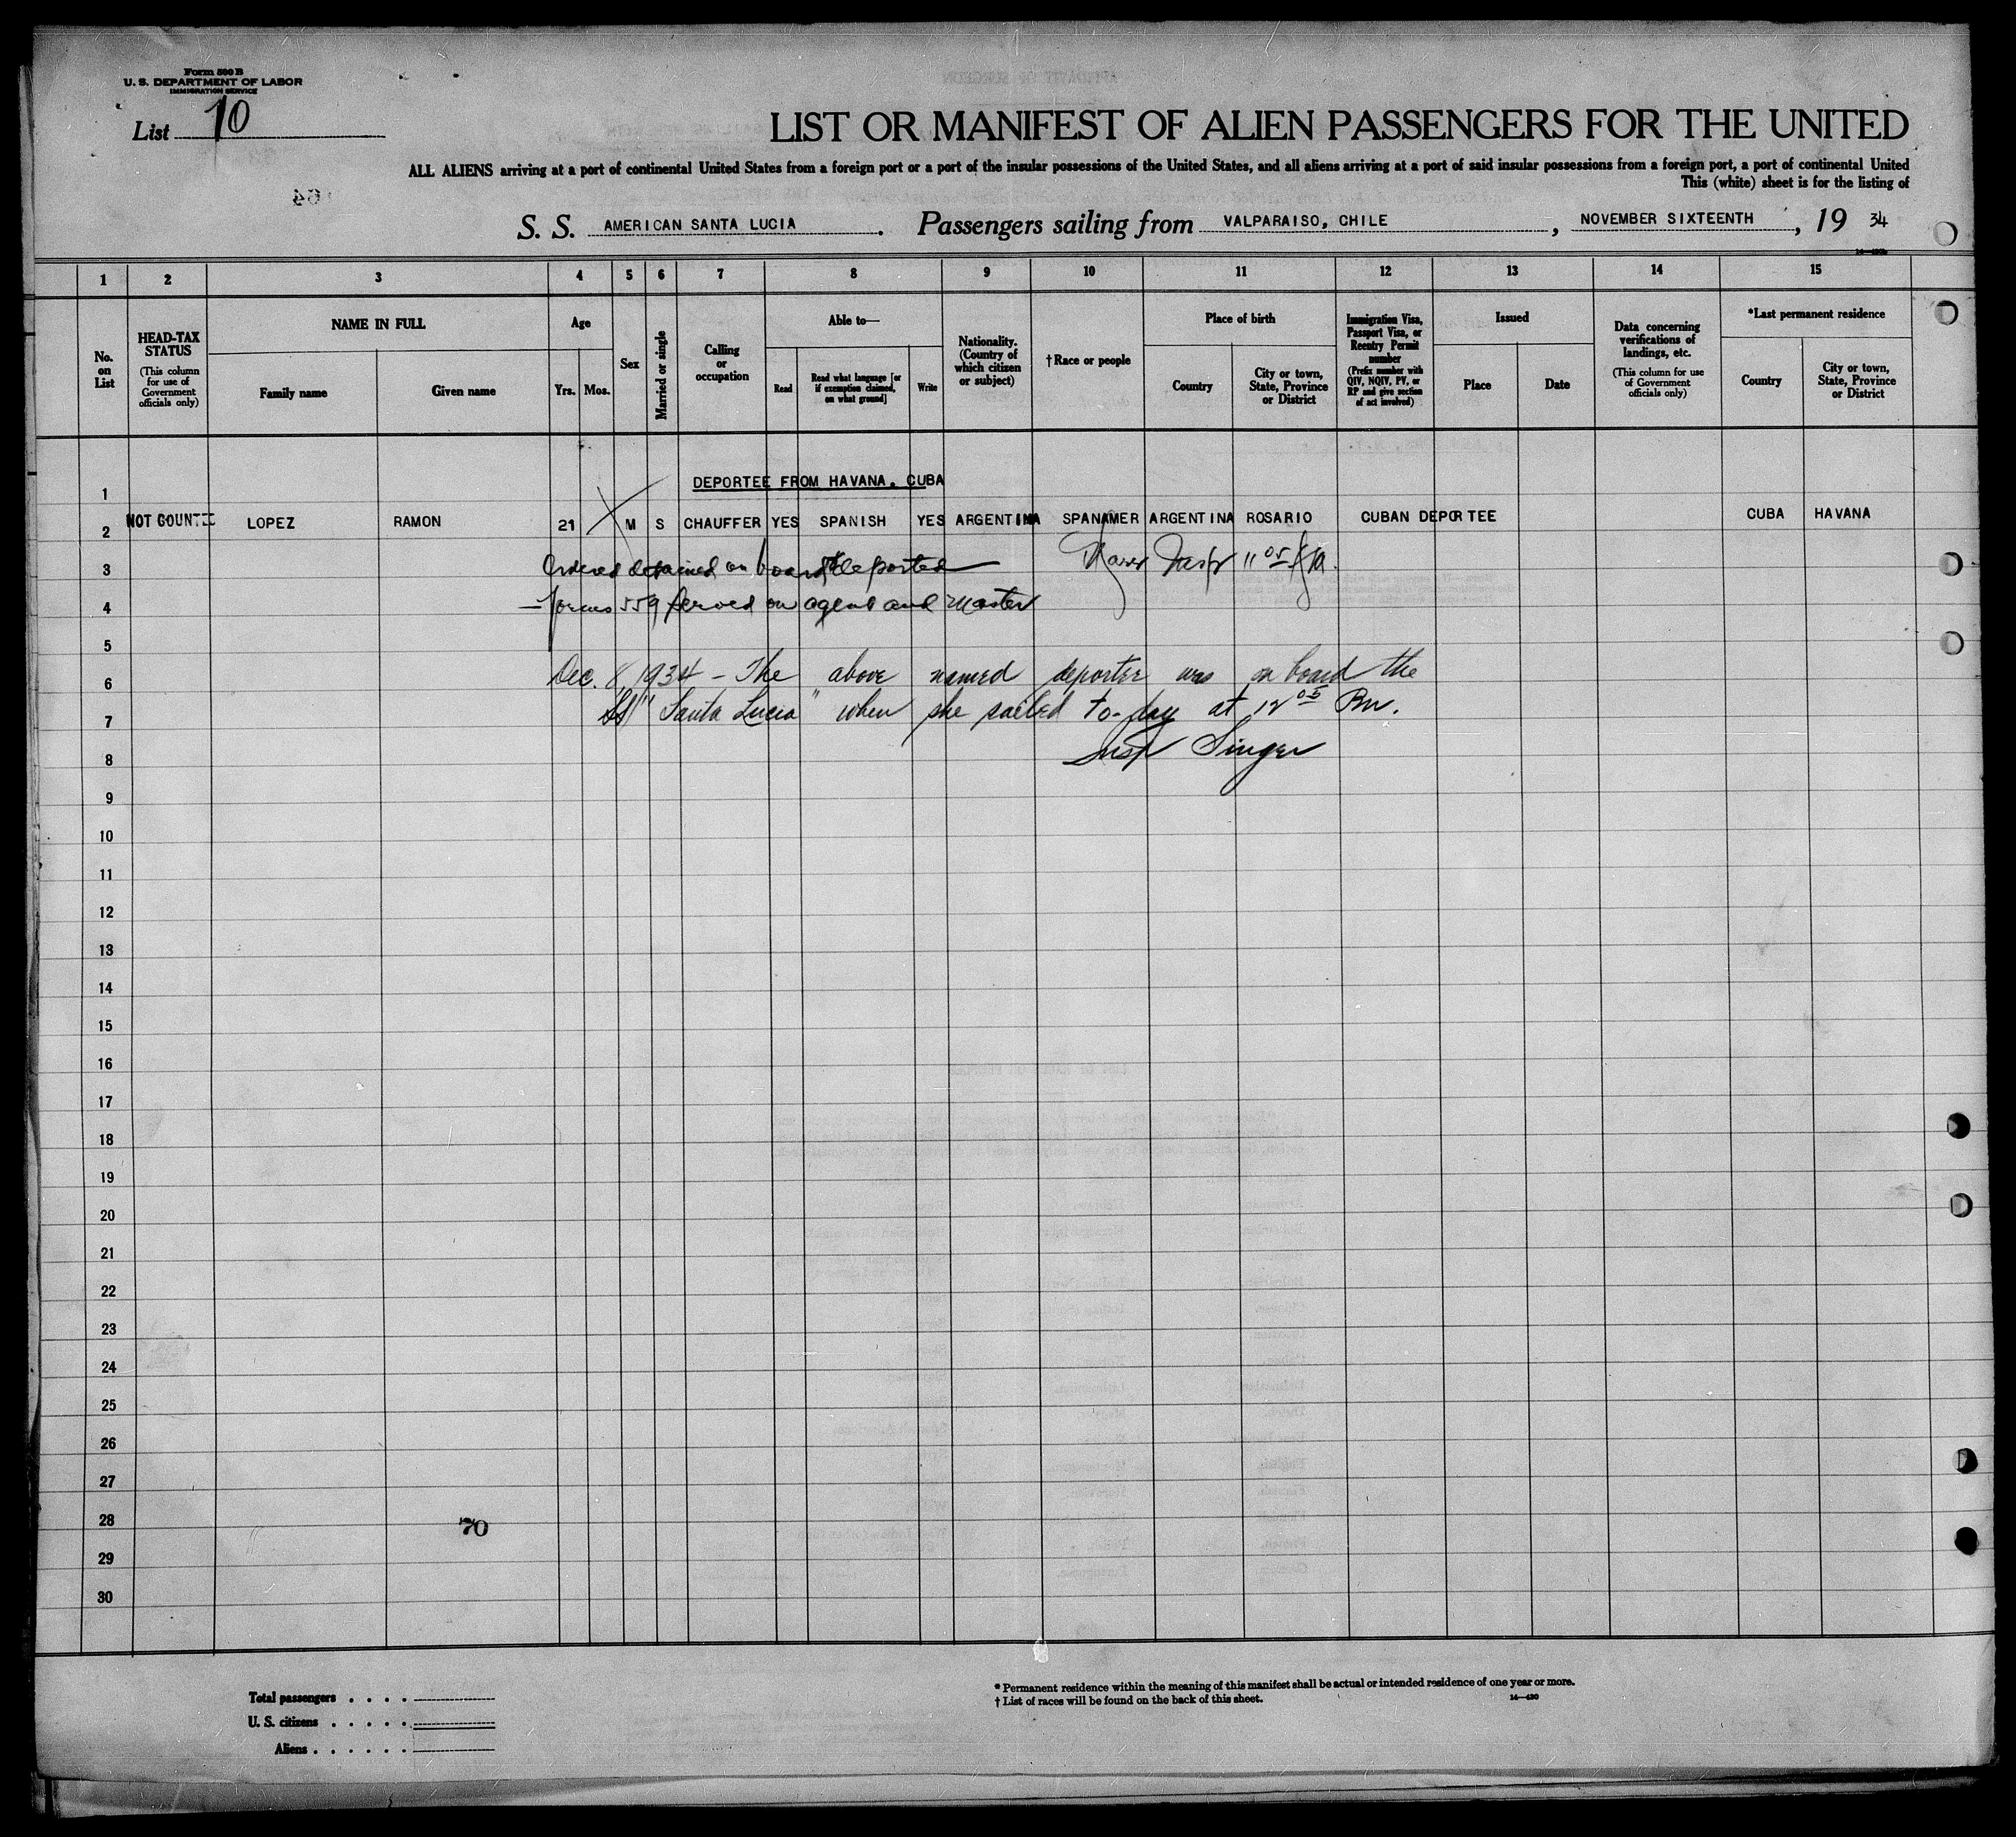 Form 500 B
U. S. DEPARTMENT OF LABOR
IMMIGRATION SERVICE
List 10
LIST OR MANIFEST OF ALIEN PASSENGERS FOR THE UNITED
ALL ALIENS arriving at a port of continental United States from a foreign port or a port of the insular possessions of the United States, and all aliens arriving at a port of said insular possessions from a foreign port, a port of continental United
This (white) sheet is for the listing of
S. S. AMERICAN SANTA LUCIA . Passengers sailing from VALPARAISO, CHILE , NOVEMBER SIXTEENTH , 19 34
1 2 3 4 5 6 7 8 9 10 11 12 13 14 15
No. on List
HEAD-TAX STATUS (This column for use of Government officials only)
NAME IN FULL
Family name
Given name
Age
Yrs. Mos.
Sex
Married or single
Calling or occupation
Able to—
Read
Read what language [or if exemption claimed, on what ground]
Write
Nationality. (Country of which citizen or subject)
† Race or people
Place of birth
Country
City or town, State, Province or District
Immigration Visa, Passport Visa, or Reentry Permit number (Prefix number with QIV, NQIV, PV, or RP and give section of act involved)
Issued
Place
Date
Data concerning verifications of landings, etc. (This column for use of Government officials only)
*Last permanent residence
Country
City or town, State, Province or District
1 DEPORTEE FROM HAVANA. CUBA
2 NOT COUNTE LOPEZ RAMON 21 M S CHAUFFER YES SPANISH YES ARGENTINA SPANAMER ARGENTINA ROSARIO CUBAN DEPORTEE CUBA HAVANA
3 Ordered detained on board & deported Insp 11 05 AM
4 — forms 559 served on agent and Master
5
6 Dec. 8, 1934 – The above named deportee was on board the
7 SS "Santa Lucia" when she sailed to-day at 12 05 Pm.
8 Insp Singer
9
10
11
12
13
14
15
16
17
18
19
20
21
22
23
24
25
26
27
28 70
29
30
Total passengers . . . .
U. S. citizens . . . . .
Aliens . . . . . .
* Permanent residence within the meaning of this manifest shall be actual or intended residence of one year or more.
† List of races will be found on the back of this sheet.
14—430